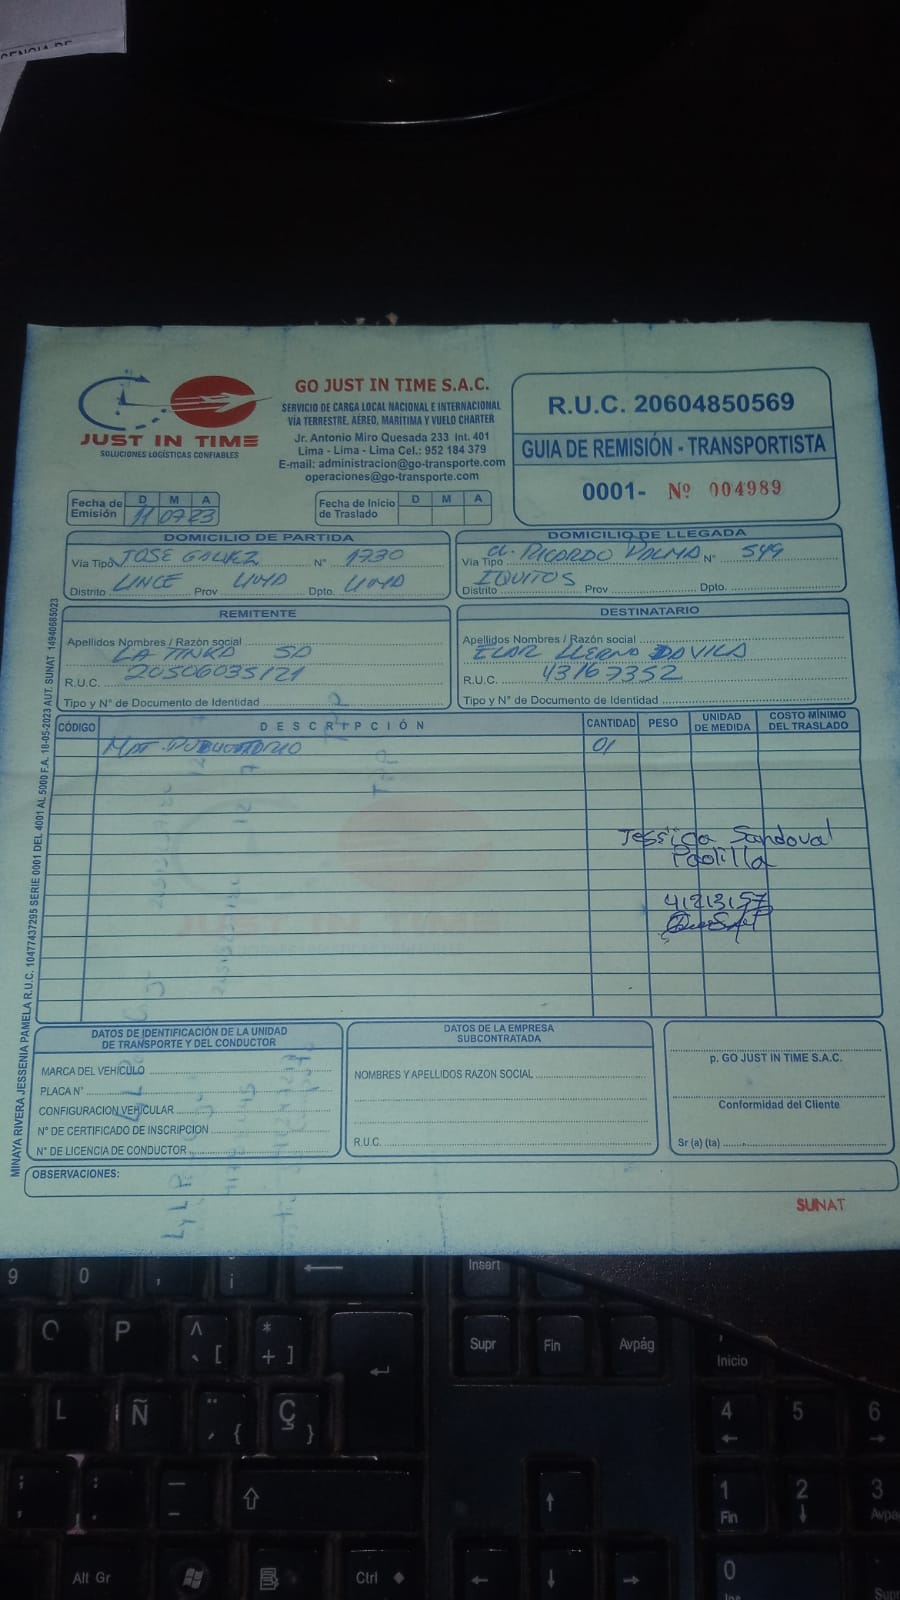 JUST IN TIME
SOLUCIONES LOGÍSTICAS CONFIABLES
GO JUST IN TIME S.A.C.
SERVICIO DE CARGA LOCAL NACIONAL E INTERNACIONAL
VÍA TERRESTRE, AEREO, MARITIMA Y VUELO CHARTER
Jr. Antonio Miro Quesada 233 Int. 401
Lima - Lima - Lima Cel.: 952 184 379
E-mail: administracion@go-transporte.com
operaciones@go-transporte.com
R.U.C. 20604850569
GUIA DE REMISIÓN - TRANSPORTISTA
0001- Nº 004989
Fecha de Emisión D M A
11 07 23
Fecha de Inicio de Traslado D M A
DOMICILIO DE PARTIDA
Vía Tipo JOSE GALVEZ Nº 1730
Distrito LINCE Prov LIMA Dpto. LIMA
DOMICILIO DE LLEGADA
Vía Tipo RICARDO PALMA Nº 549
Distrito IQUITOS Prov Dpto.
REMITENTE
Apellidos Nombres / Razón social
LA TINKA SA
R.U.C. 20506035121
Tipo y N° de Documento de Identidad
DESTINATARIO
Apellidos Nombres / Razón social
DAVILA
R.U.C. 43167352
Tipo y N° de Documento de Identidad
CÓDIGO DESCRIPCIÓN CANTIDAD PESO UNIDAD DE MEDIDA COSTO MÍNIMO DEL TRASLADO
MAT. PUBLICITARIO 01
Jessica Sandoval
Padilla
41213157
DATOS DE IDENTIFICACIÓN DE LA UNIDAD
DE TRANSPORTE Y DEL CONDUCTOR
MARCA DEL VEHÍCULO
PLACA N°
CONFIGURACION VEHICULAR
N° DE CERTIFICADO DE INSCRIPCION
N° DE LICENCIA DE CONDUCTOR
DATOS DE LA EMPRESA
SUBCONTRATADA
NOMBRES Y APELLIDOS RAZON SOCIAL
R.U.C.
p. GO JUST IN TIME S.A.C.
Conformidad del Cliente
Sr (a) (ta)
OBSERVACIONES:
SUNAT
MINAYA RIVERA JESSENIA PAMELA R.U.C. 10477437295 SERIE 0001 DEL 4001 AL 5000 F.A. 18-05-2023 AUT. SUNAT 14940685023
9 0 , ¡ Insert
O P ^ ` [ * + ] Supr Fin Avpág Inicio
L Ñ ¨ ´ { Ç } 4 5 6
; , : . - _ 1 Fin 2 3
Alt Gr Ctrl 0